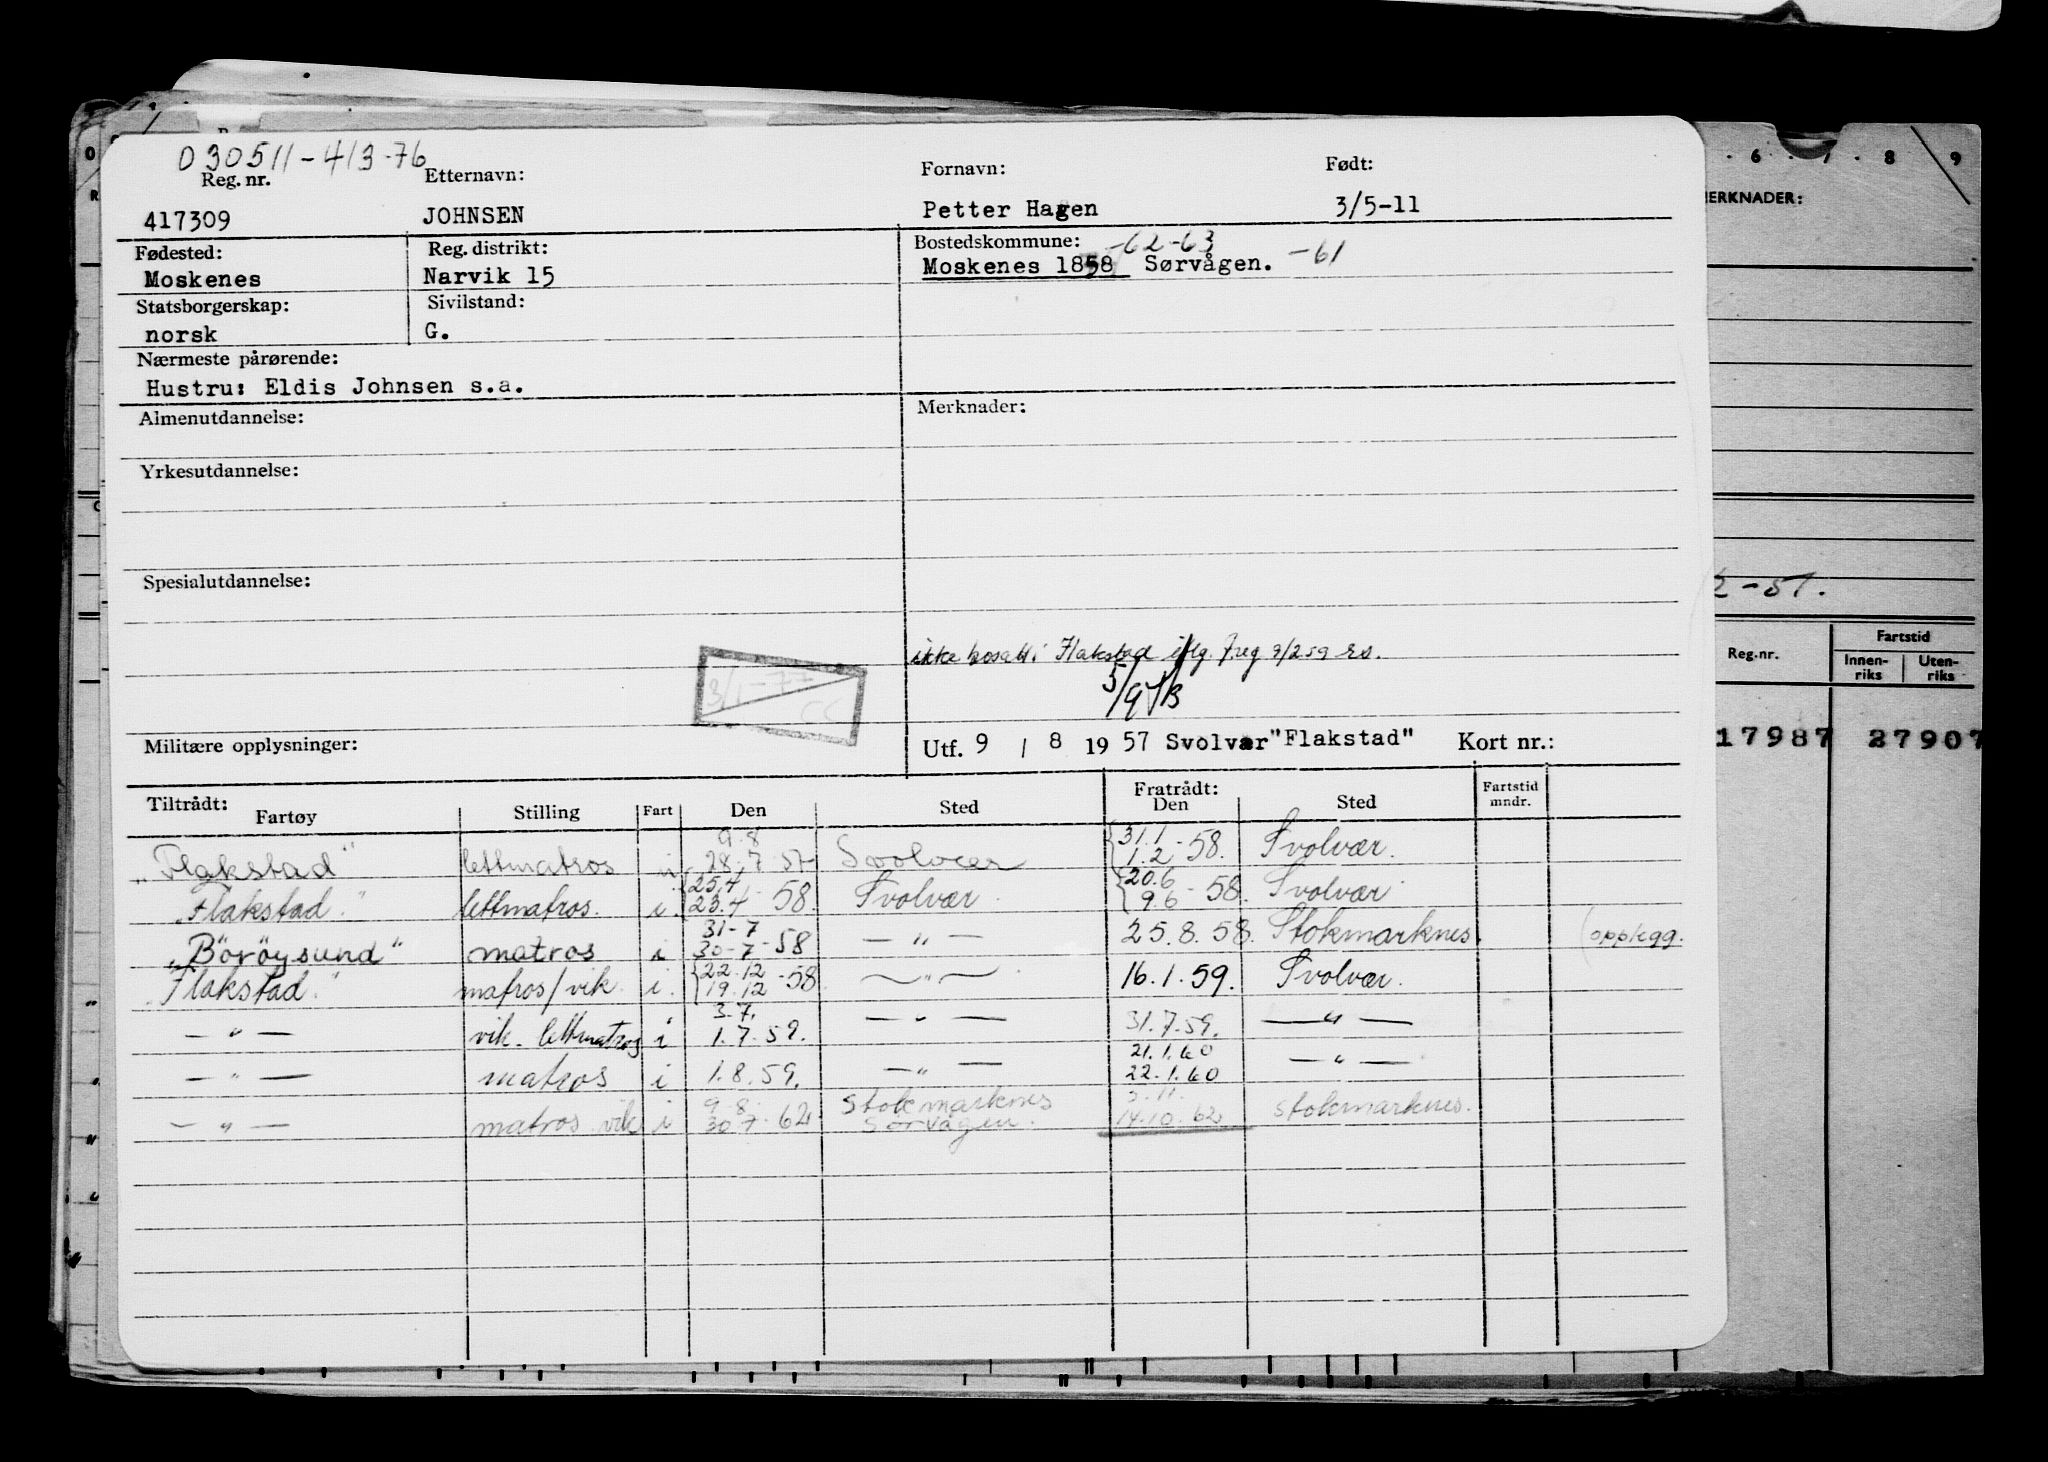 030511-413-76
Reg. nr. Etternavn: Fornavn: Født:
417309 JOHNSEN Petter Hagen 3/5-11
Fødested: Reg. distrikt: Bostedskommune: -62-63
Moskenes Narvik 15 Moskenes 1858 Sørvågen. -61
Statsborgerskap: Sivilstand:
norsk G.
Nærmeste pårørende:
Hustru: Eldis Johnsen s.a.
Almenutdannelse: Merknader:
Yrkesutdannelse:
Spesialutdannelse:
ikke bosatt i Flakstad iflg. freg 9/2 59 rs.
3/1-77 CC
5/9
Militære opplysninger: Utf. 9 / 8 1957 Svolvær "Flakstad" Kort nr.:
Tiltrådt: Fratrådt: Fartstid
Fartøy Stilling Fart Den Sted Den Sted mndr.
9.8 31.1
"Flakstad" lettmatros i 28.7.57 Svolvær 1.2-58. Svolvær.
25.4 20.6
"Flakstad." lettmatros. i. 23.4-58. Svolvær 9.6-58. Svolvær
31-7
"Böröysund" matros i 30-7-58 —"— 25.8.58. Stokmarknes. (opplegg.
22.12
"Flakstad." matros/vik. i. 19.12-58 —"— 16.1.59. Svolvær.
3.7.
—"— vik. lettmatros i 1.7.59. —"— 31.7.59. —"—
21.1.60
—"— matros i 1.8.59. —"— 22.1.60 —"—
9.8. Stokmarknes 5.11.
—"— matros vik i 30.7.62 Sørvågen. 14.10.62 Stokmarknes.
6 . 7 . 8 . 9
MERKNADER:
2-51.
Reg.nr. Fartstid
Innen-riks Uten-riks
17987 27907